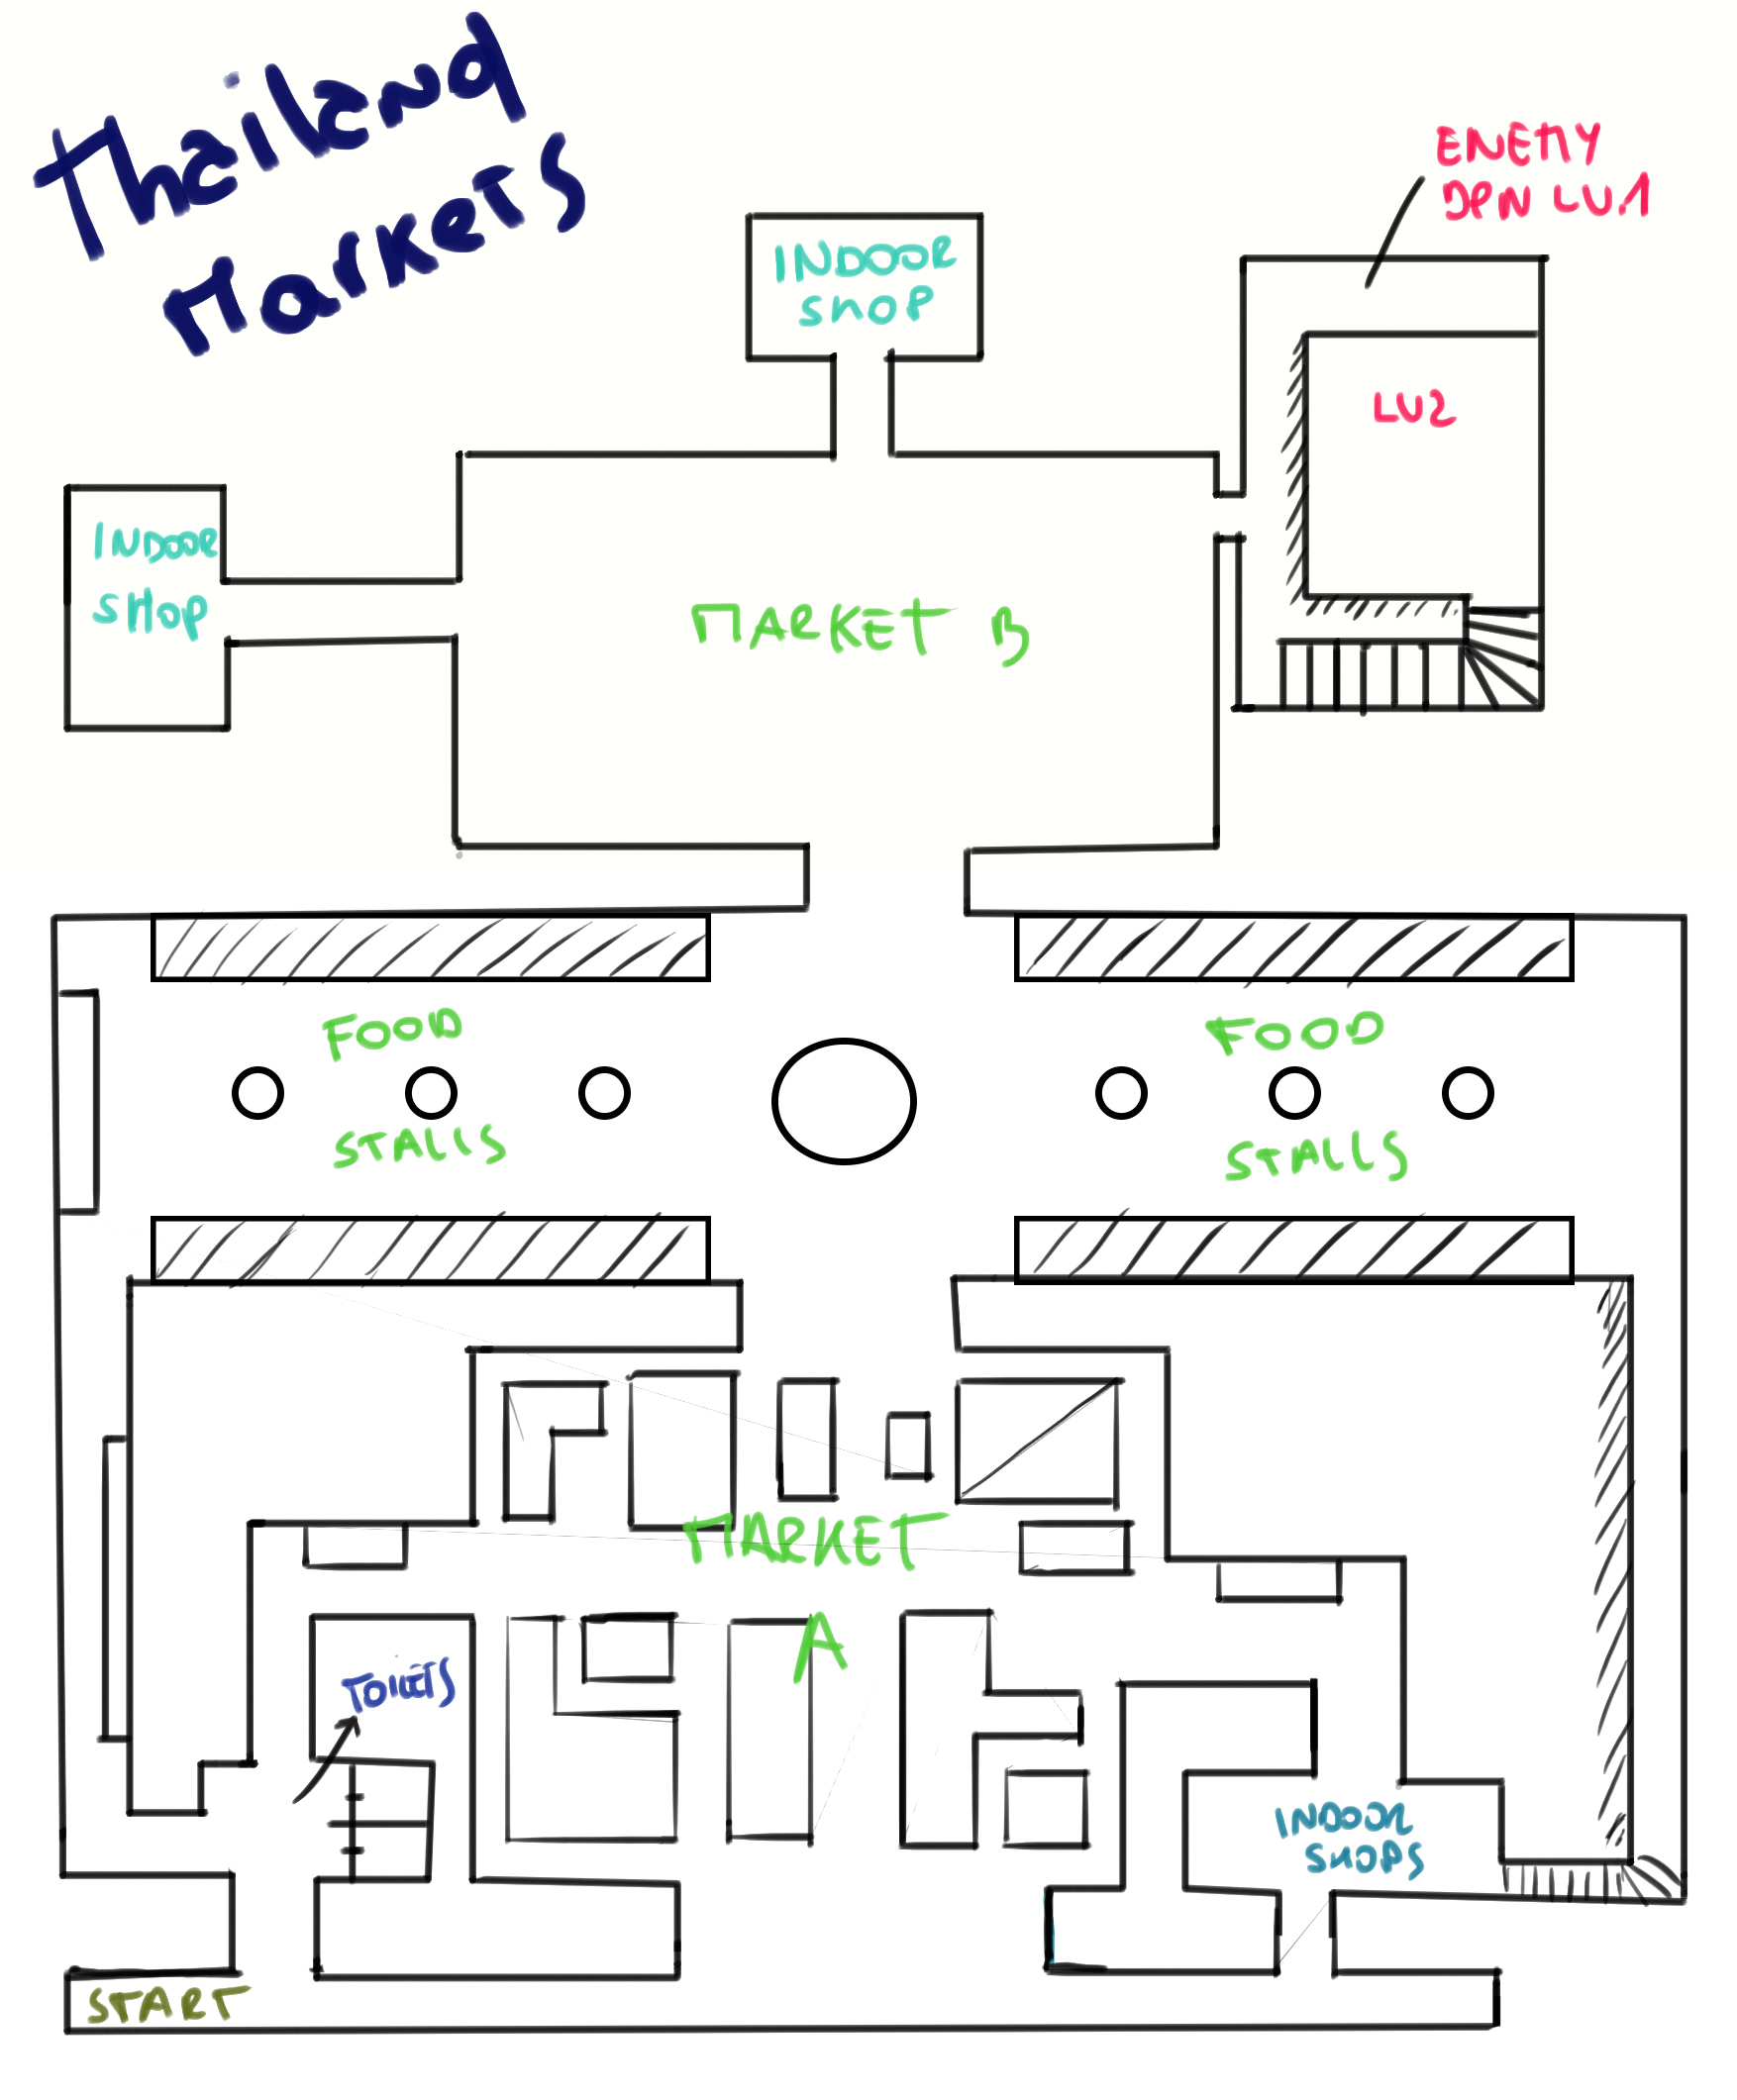 Thailand
Markets
ENEMY
SPN LV.1
INDOOR
SHOP
LV2
INDOOR
SHOP
MARKET B
FOOD
STALLS
FOOD
STALLS
MARKET
A
TOILETS
INDOOR
SHOPS
START